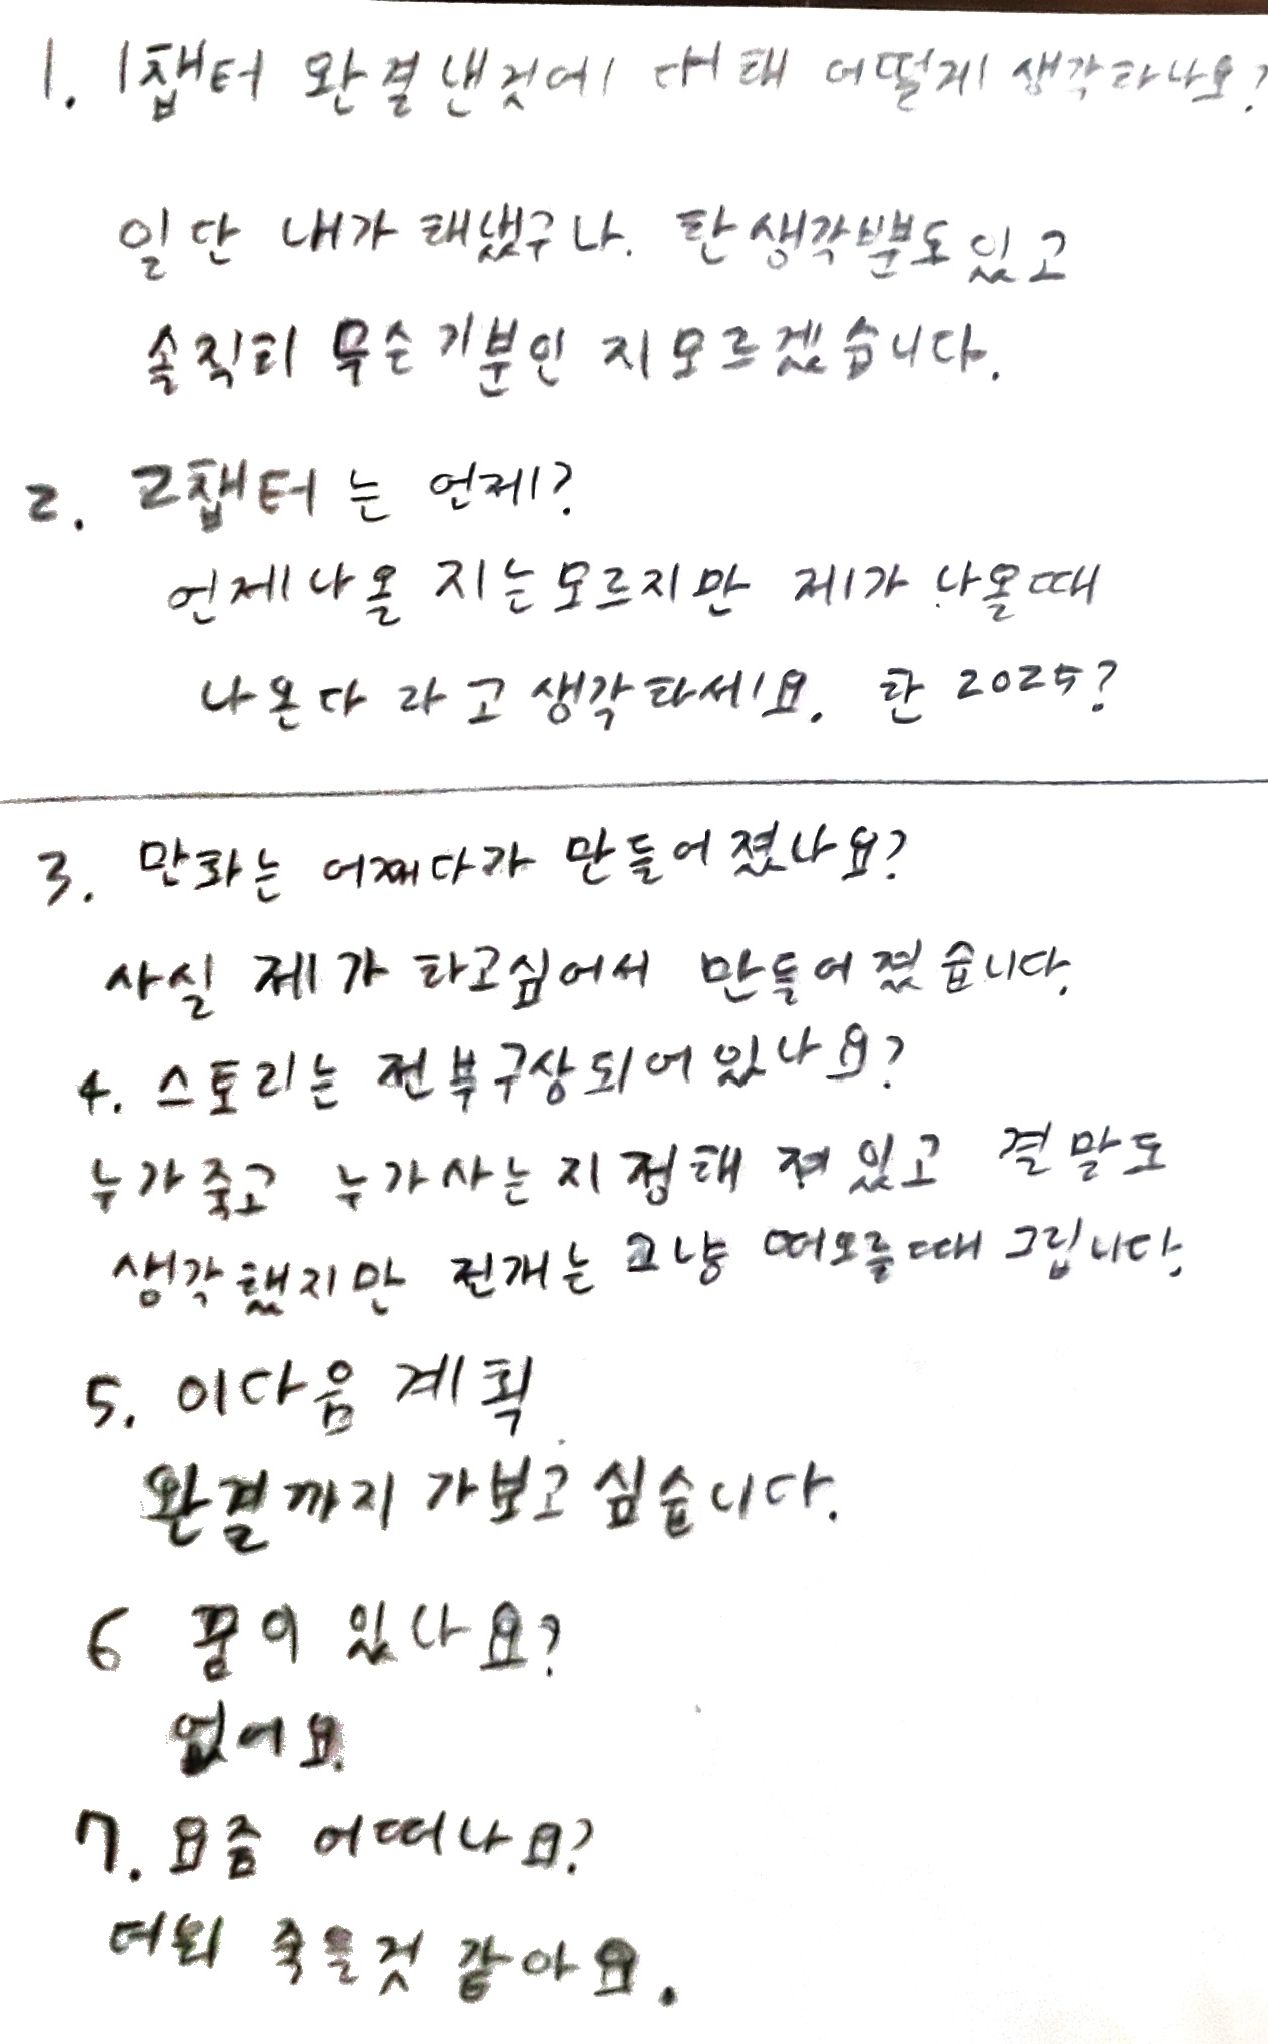 1. 1챕터 완결낸것에 대해 어떻게 생각하나요?
일단 내가 해냈구나. 한 생각뿐도있고
솔직히 무슨기분인 지모르겠습니다.
2. 2챕터는 언제?
언제나올 지는모르지만 제가 나올때
나온다 라고 생각하세요. 한 2025?
3. 만화는 어쩌다가 만들어졌나요?
사실 제가 하고싶어서 만들어졌습니다.
4. 스토리는 전부구상되어있나요?
누가죽고 누가사는지 정해 져있고 결말도
생각했지만 전개는 그냥 떠오를때 그립니다.
5. 이다음 계획
완결까지 가보고싶습니다.
6 꿈이 있나요?
없어요.
7. 요즘 어떠나요?
더워 죽을것 같아요.